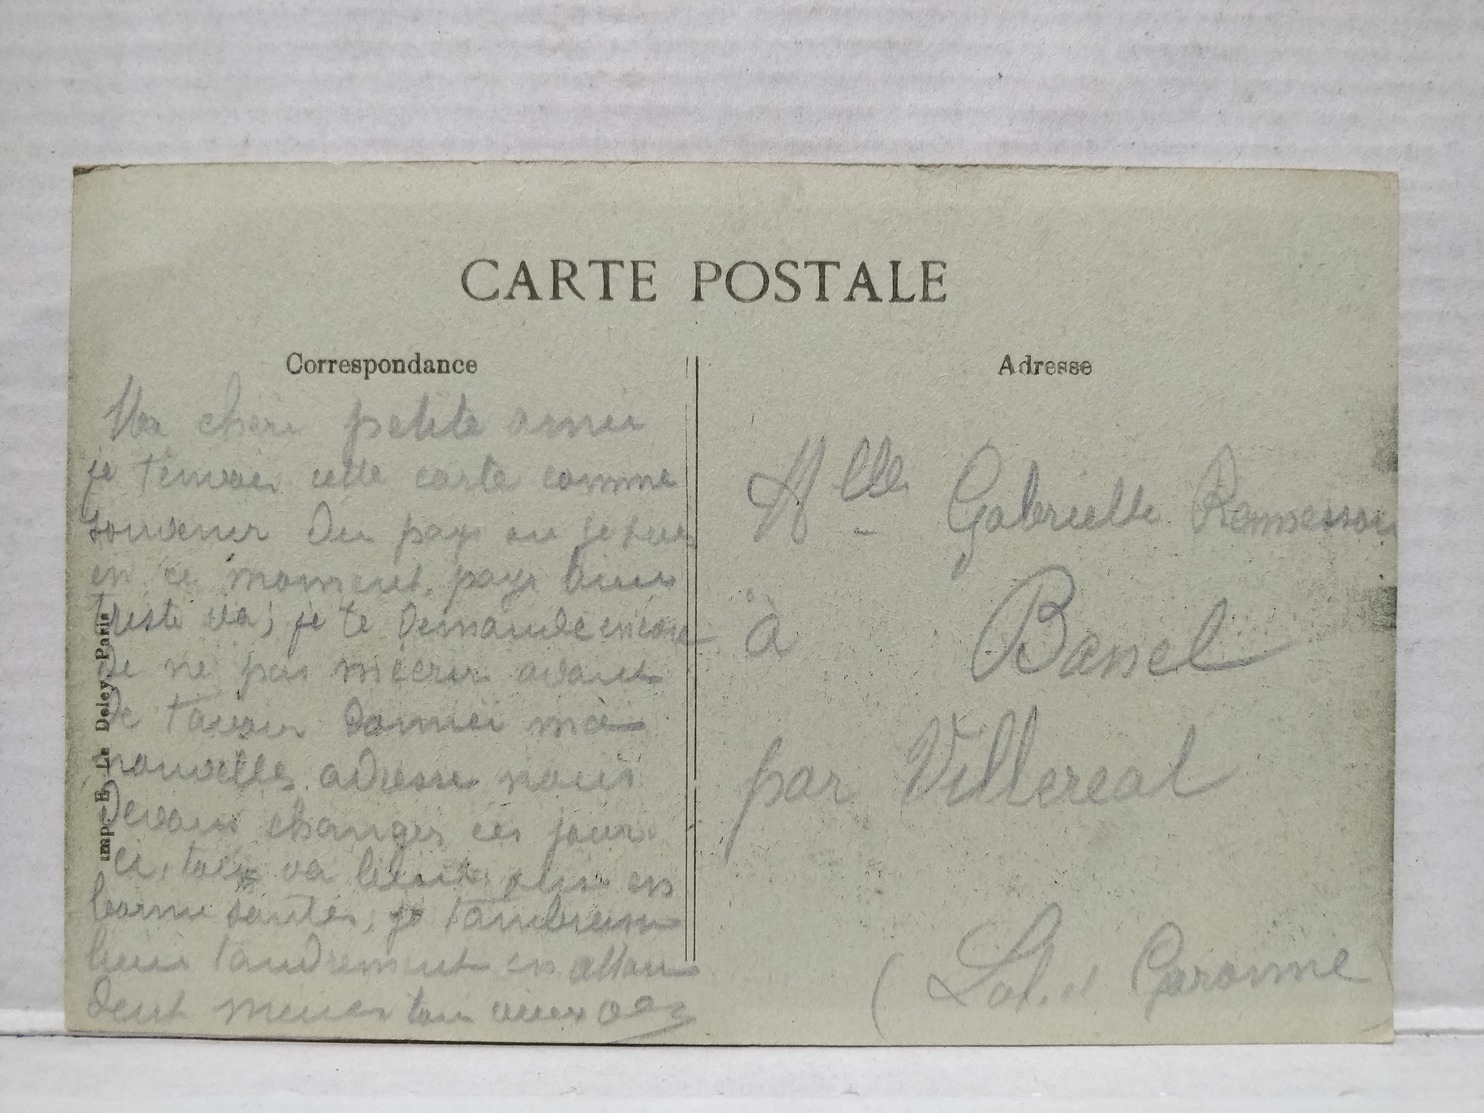 CARTE POSTALE
Correspondance
Ma chere petite amie
je t'envoie cette carte comme
souvenir du pays ou je suis
en ce moment, pays bien
triste va; je te demande encore
de ne pas m'ecrir avant
de tavoir donner ma
nouvelle adresse nous
devons changer ces jours
ci, va
bonne santé, je tambrasse
bien tandrement en attan
dent ton
Imp. E. Le Deley, Paris
Adresse
Mlle Gabrielle
à
par Villereal
(Lot. et Garonne)